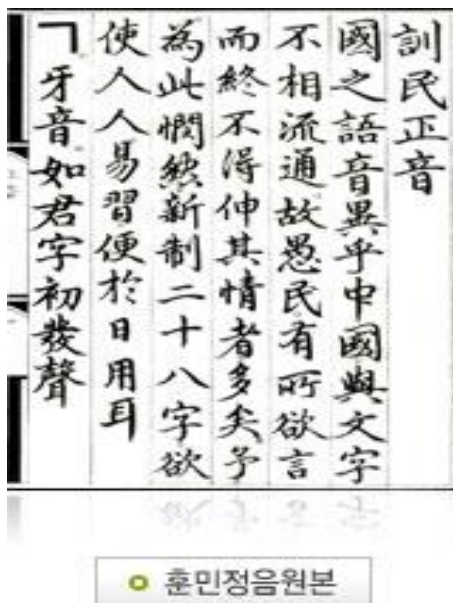 訓民正音
國之語音異乎中國與文字
不相流通故愚民有所欲言
而終不得伸其情者多矣予
為此憫然新制二十八字欲
使人人易習便於日用耳
ㄱ牙音如君字初發聲
훈민정음원본